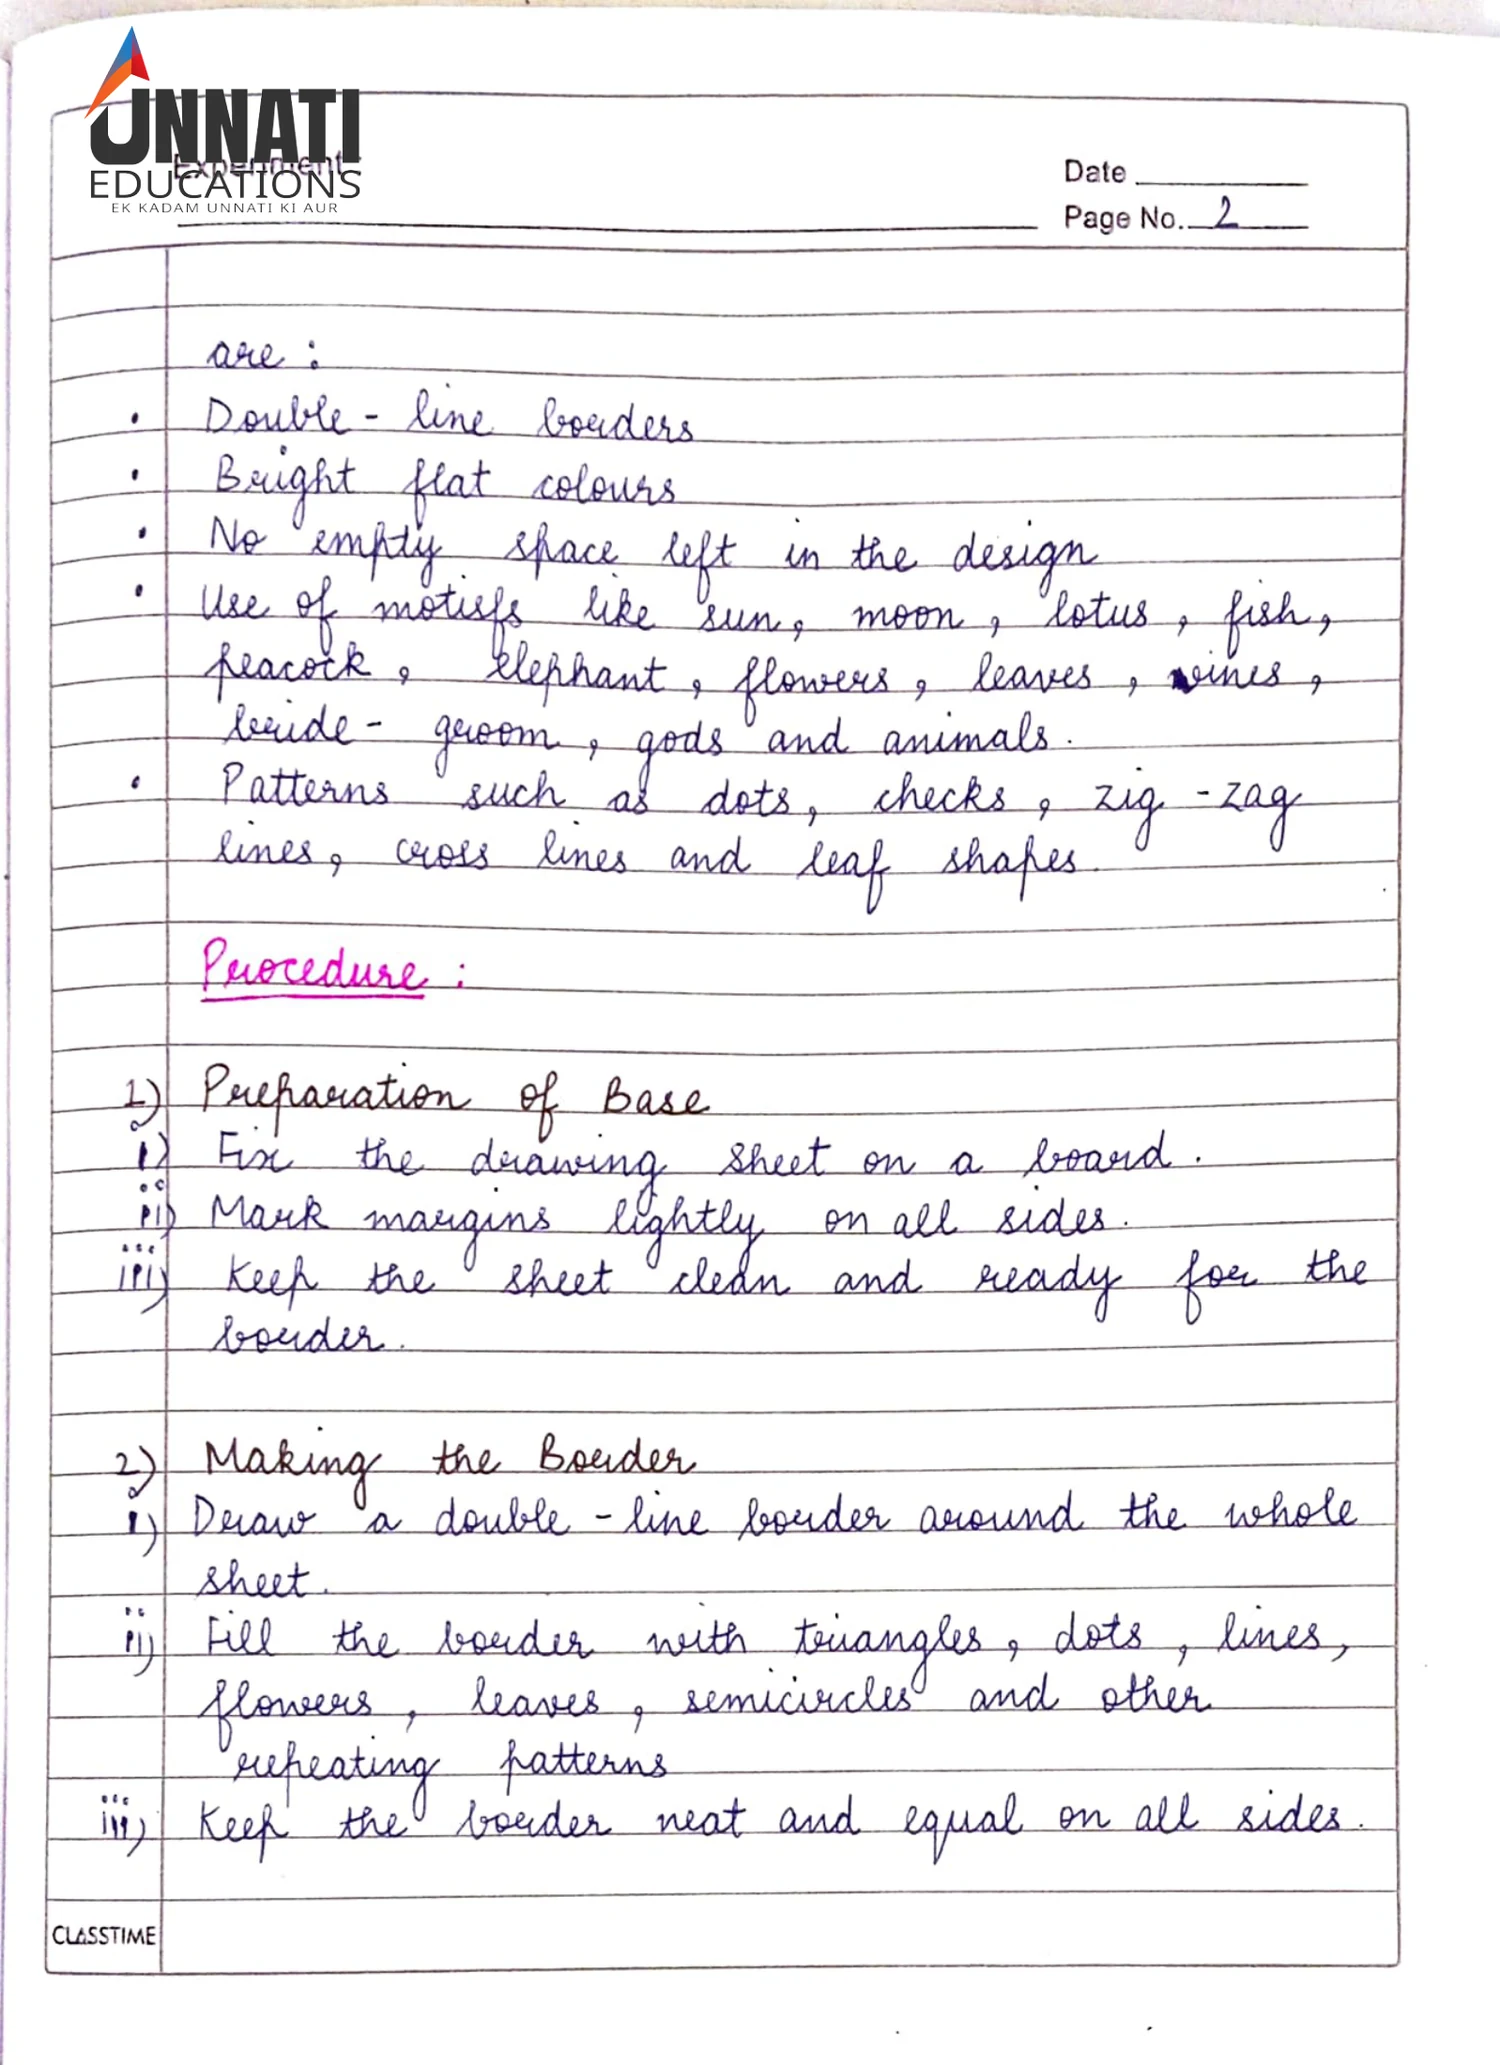 UNNATI
EDUCATIONS
EK KADAM UNNATI KI AUR
Experiment
Date
Page No. 2
are :
• Double - line borders
• Bright flat colours
• No empty space left in the design
• Use of motisfs like sun, moon, lotus, fish,
peacock, elephant, flowers, leaves, vines,
bride - groom, gods and animals.
• Patterns such as dots, checks, zig - zag
lines, cross lines and leaf shapes.
Procedure :
1) Preparation of Base
i) Fix the drawing sheet on a board.
ii) Mark margins lightly on all sides.
iii) Keep the sheet clean and ready for the
border.
2) Making the Border
i) Draw a double - line border around the whole
sheet.
ii) Fill the border with triangles, dots, lines,
flowers, leaves, semicircles and other
repeating patterns
iii) Keep the border neat and equal on all sides.
CLASSTIME